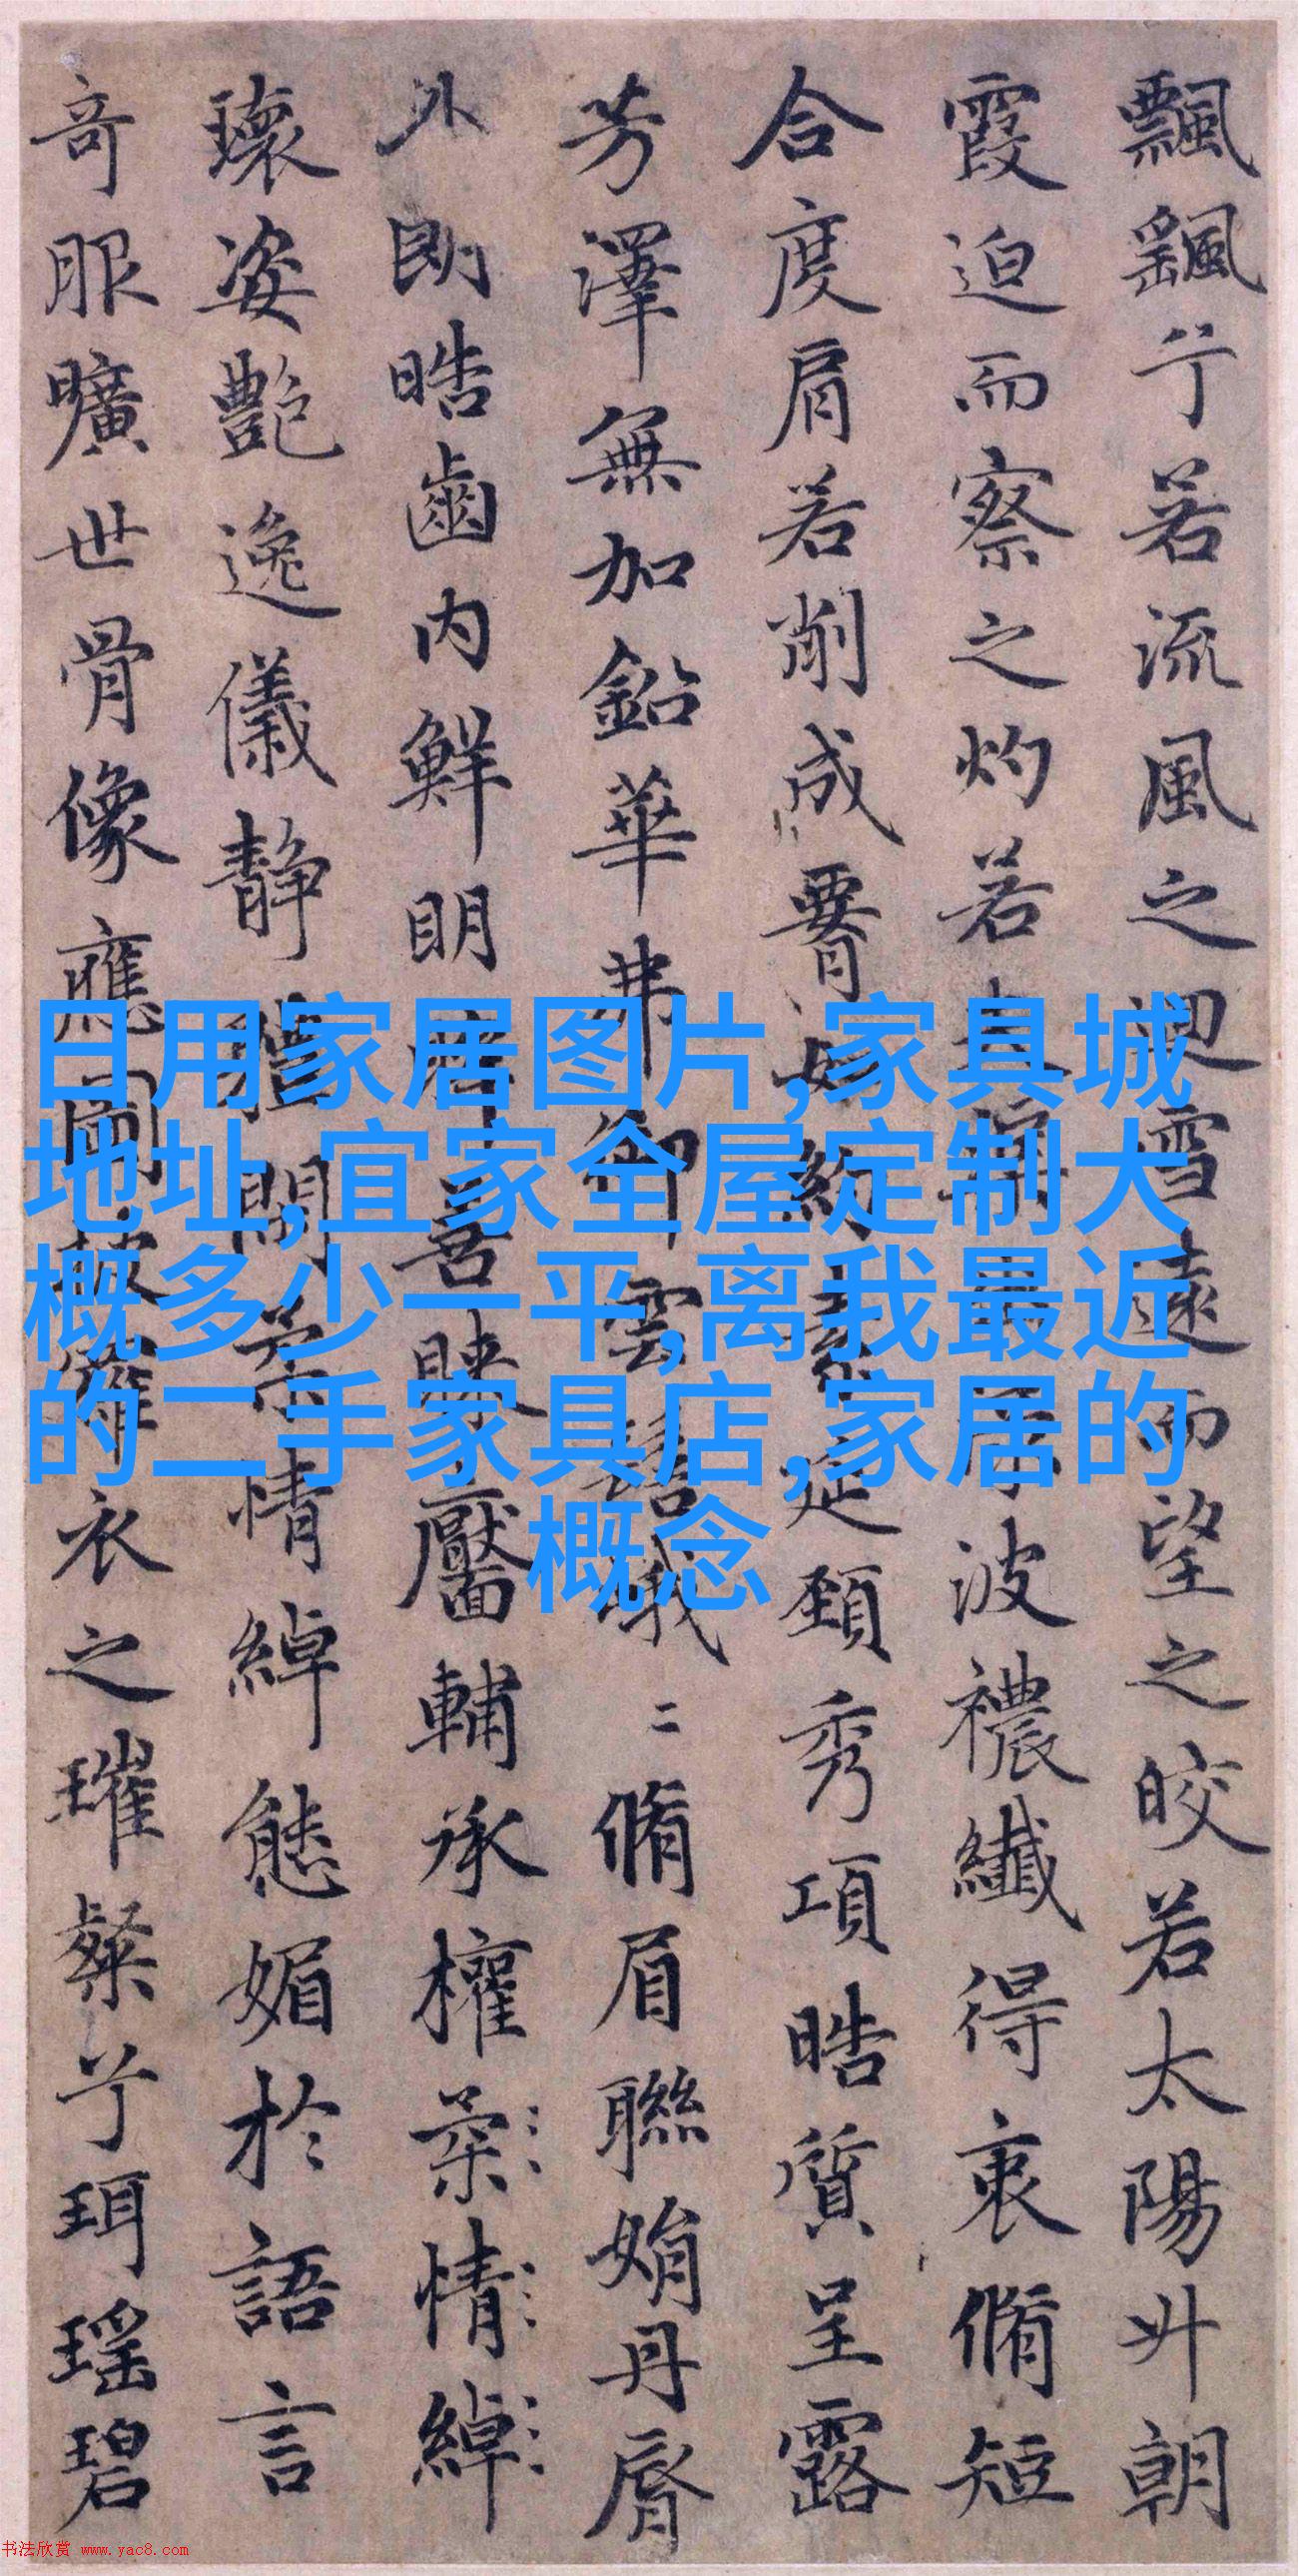 飄飖兮若流風之迴雪遠而望之皎若太陽升朝
霞迫而察之灼若芙蕖出淥波禯纖得衷脩短
合度肩若削成要如約素延頸秀項皓質呈露
芳澤無加鉛華弗御雲髻峩二脩眉聯娟丹脣
外朗皓齒内鮮明眸善睞靨輔承權柔情綽
瓌姿艷逸儀静體閒柔情綽態媚於語言
奇服曠世骨像應圖披羅衣之璀粲兮珥瑶碧
日用家居图片,家具城
地址,宜家全屋定制大
概多少一平,离我最近
的二手家具店,家居的
概念
书法欣赏 www.yac8.com